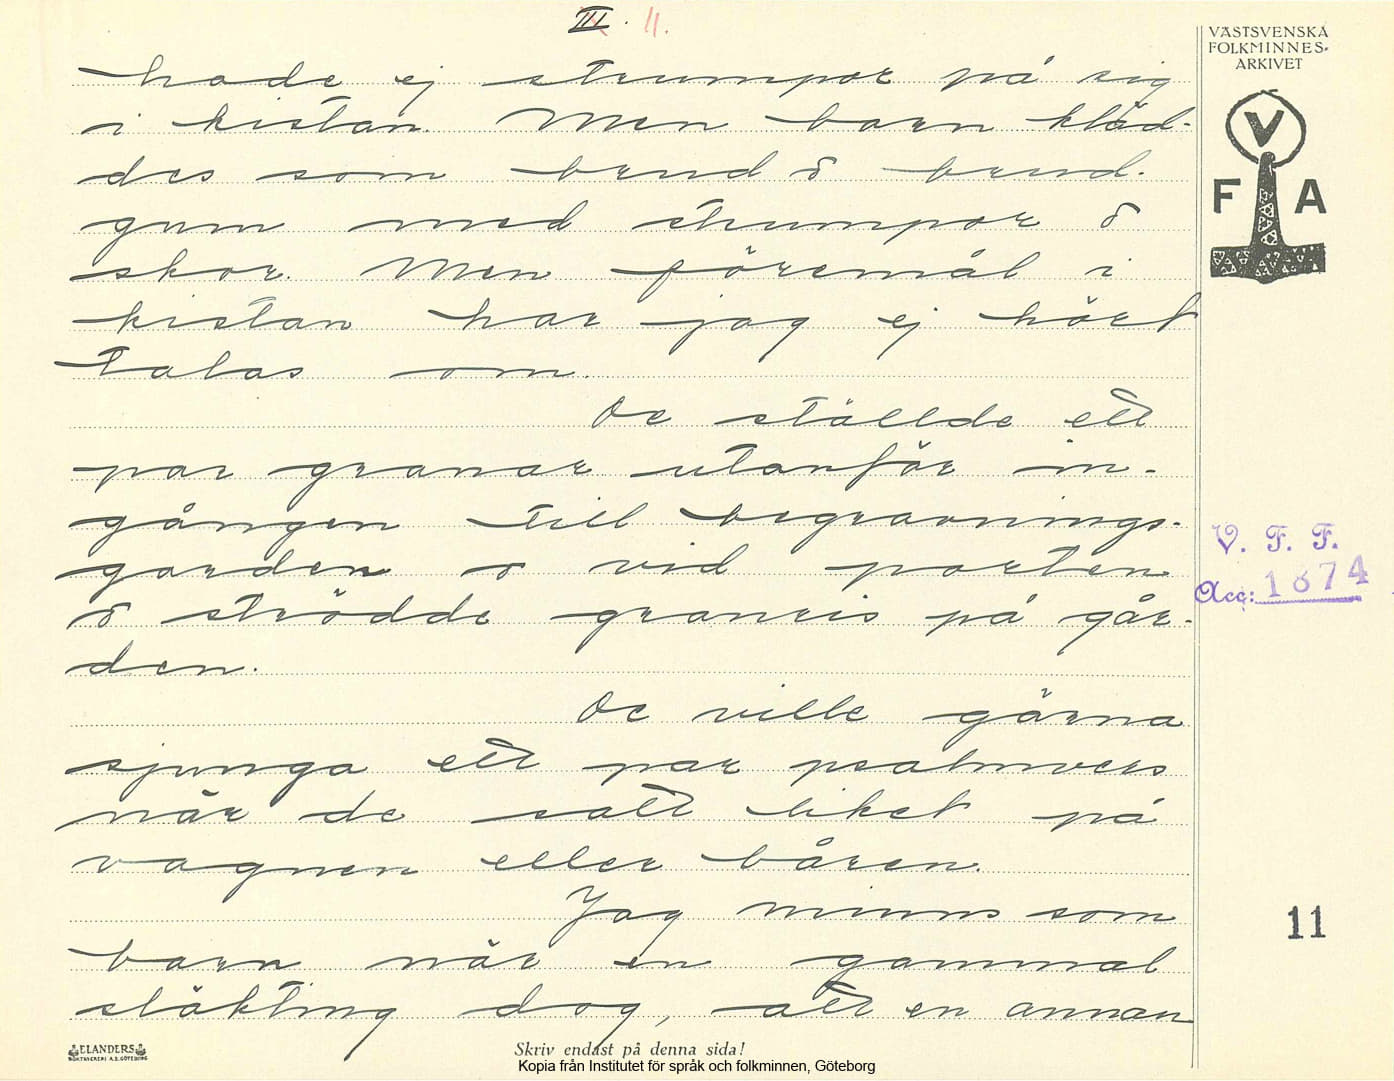 III. 11.
VÄSTSVENSKA
FOLKMINNES-
ARKIVET
V
F A
hade ej strumpor på sig
i kistan. Men barn kläd-
des som brud o brud-
gum med strumpor o
skor. Men föremål i
kistan har jag ej hört
talas om.
De ställde ett
par granar utanför in-
gången till begravnings-
garden o vid porten
o strödde granris på går-
den.
De ville gärna
sjunga ett par psalmvers
när de satt liket på
vagnen eller båren.
Jag minns som
barn när en gammal
släkting dog, att en annan
V. F. F.
Acc: 1874
11
ELANDERS
BOKTRYCKERI A.B. GÖTEBORG
Skriv endast på denna sida!
Kopia från Institutet för språk och folkminnen, Göteborg